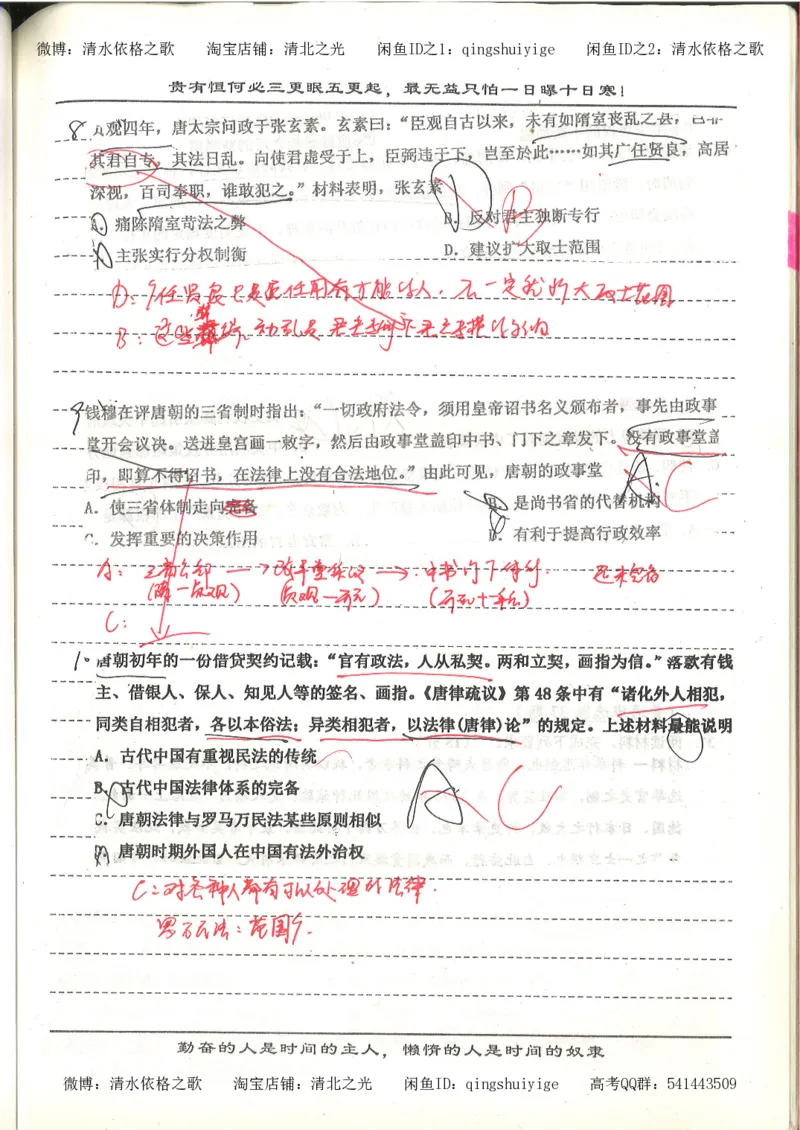 微博：清水依格之歌 淘宝店铺：清北之光 闲鱼ID之1：qingshuiyige 闲鱼ID之2：清水依格之歌
贵有恒何必三更眠五更起，最无益只怕一日曝十日寒！
8 贞观四年，唐太宗问政于张玄素。玄素曰：“臣观自古以来，未有如隋室丧乱之甚，岂非
其君自专，其法日乱。向使君虚受于上，臣弼违于下，岂至於此……如其广任贤良，高居
深视，百司奉职，谁敢犯之。”材料表明，张玄素
D B
A．痛陈隋室苛法之弊 B．反对君主独断专行
C．主张实行分权制衡 D．建议扩大取士范围
D：广任贤良只是要任用有才能的人，不一定就扩大取士范围
9 钱穆在评唐朝的三省制时指出：“一切政府法令，须用皇帝诏书名义颁布者，事先由政事
堂开会议决。送进皇宫画一敕字，然后由政事堂盖印中书、门下之章发下。没有政事堂盖
印，即算不得诏书，在法律上没有合法地位。”由此可见，唐朝的政事堂
A C
A．使三省体制走向完备 B．是尚书省的代替机构
C．发挥重要的决策作用 D．有利于提高行政效率
C：
10 唐朝初年的一份借贷契约记载：“官有政法，人从私契。两和立契，画指为信。”落款有钱
主、借银人、保人、知见人等的签名、画指。《唐律疏议》第 48 条中有“诸化外人相犯，
同类自相犯者，各以本俗法；异类相犯者，以法律(唐律)论”的规定。上述材料最能说明
A．古代中国有重视民法的传统
B．古代中国法律体系的完备
A C
C．唐朝法律与罗马万民法某些原则相似
D．唐朝时期外国人在中国有法外治权
C：对各种人都有可以处理的法律．
罗万民法：范围广．
勤奋的人是时间的主人，懒惰的人是时间的奴隶
微博：清水依格之歌 淘宝店铺：清北之光 闲鱼ID：qingshuiyige 高考QQ群：541443509